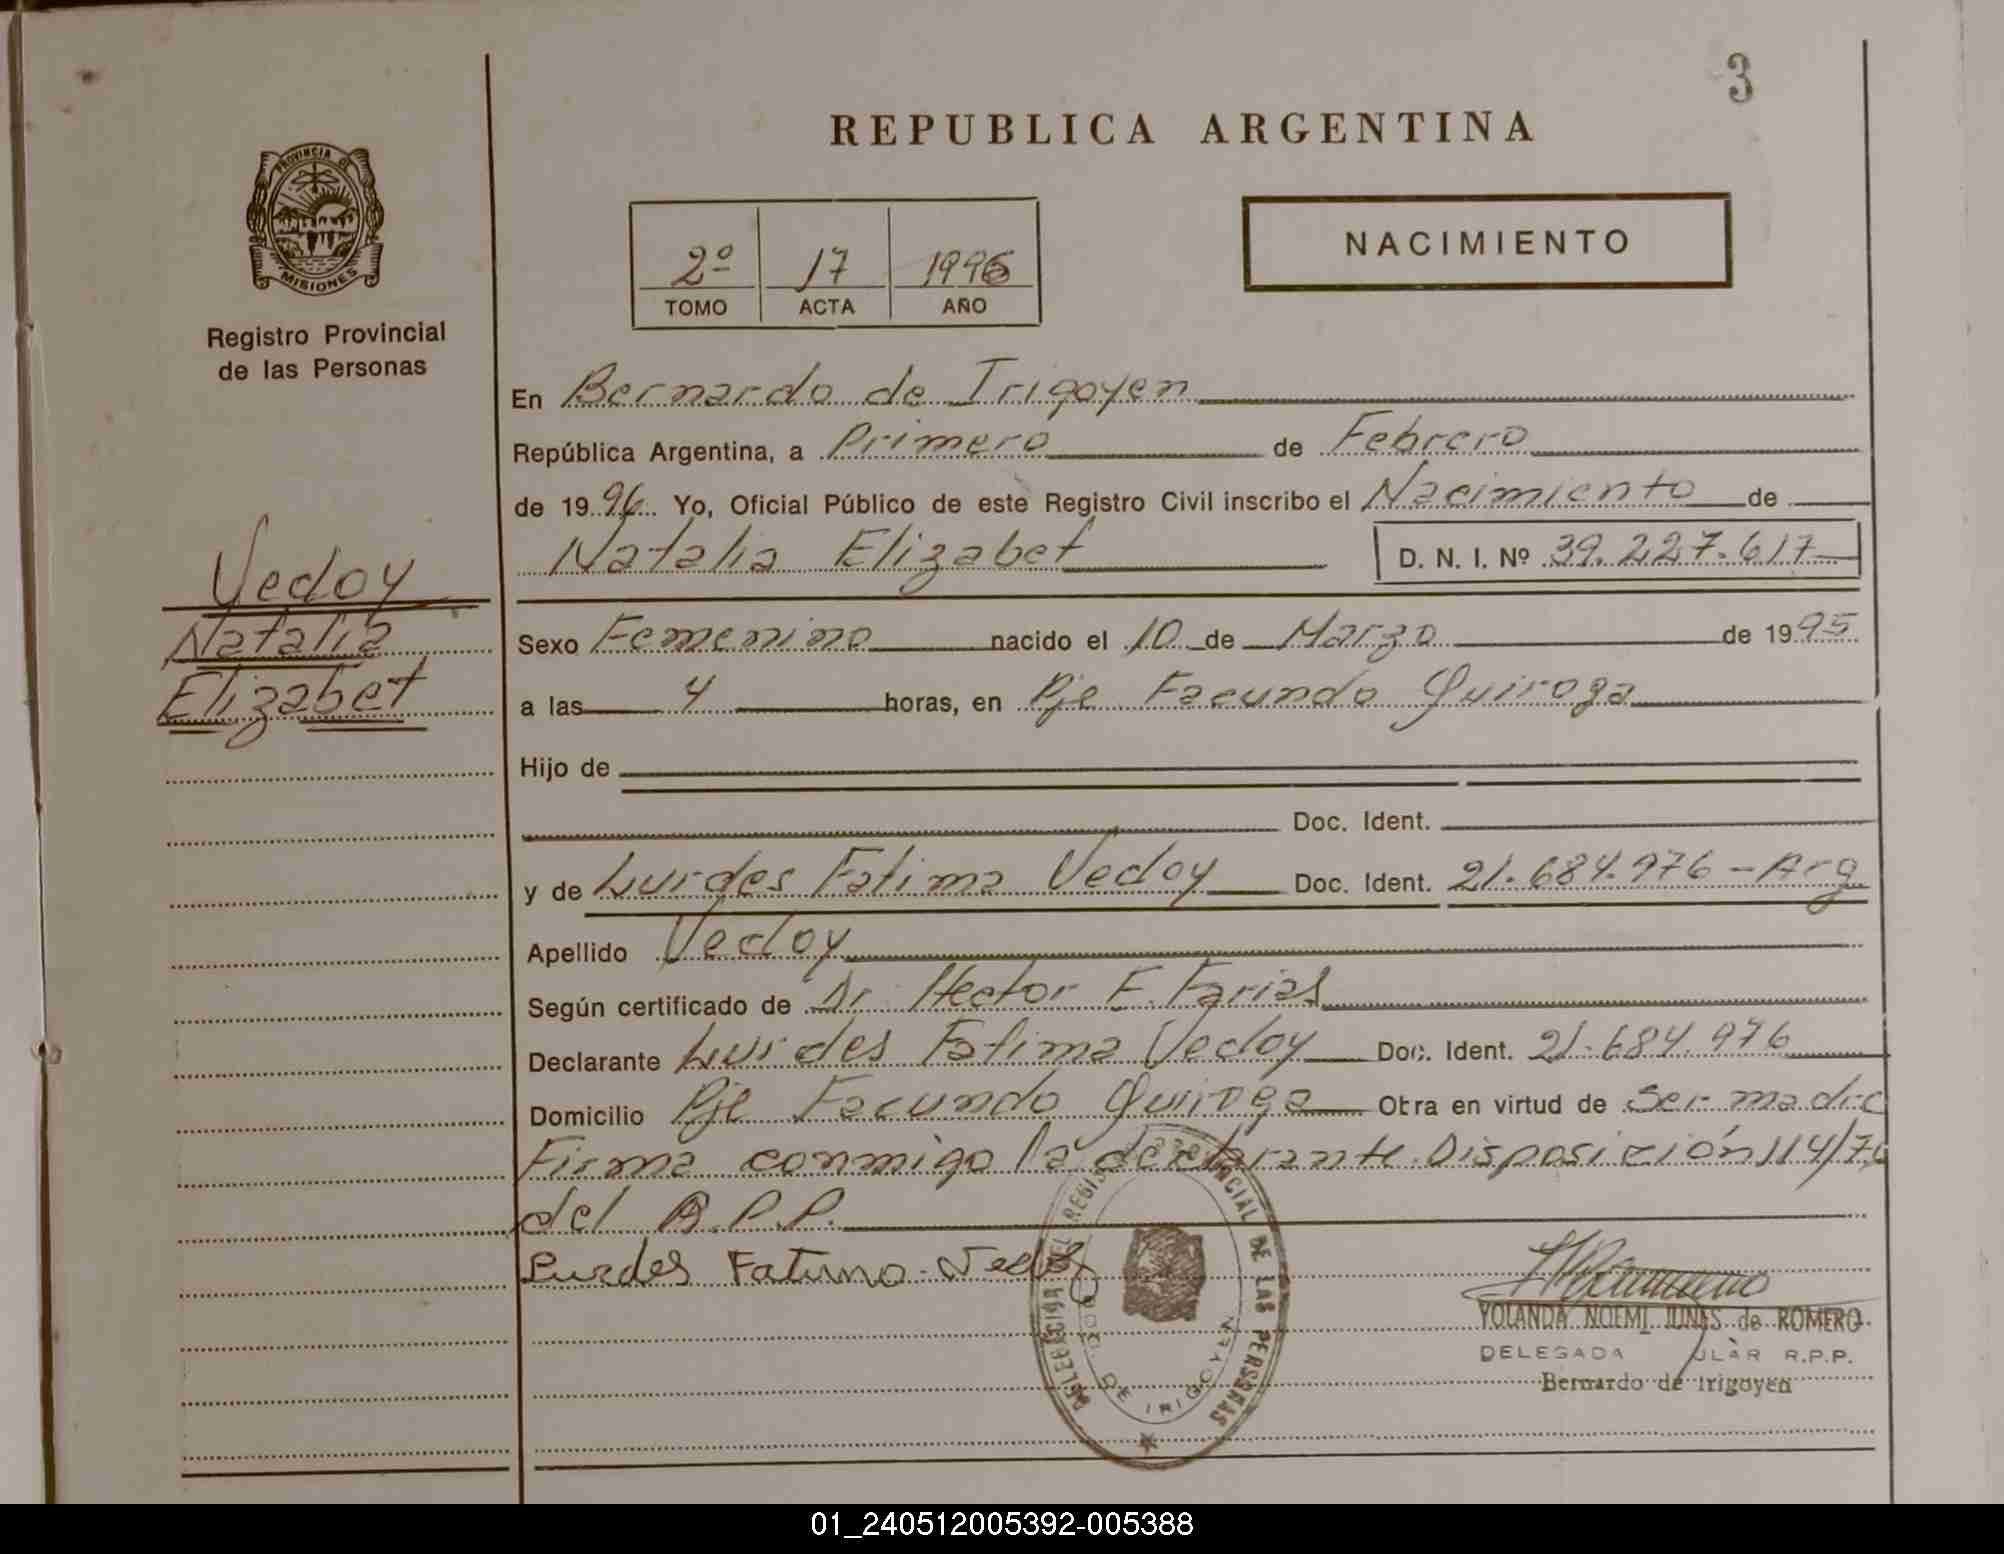 3
REPUBLICA ARGENTINA
PROVINCIA DE MISIONES
Registro Provincial
de las Personas
2º 17 1996
TOMO ACTA AÑO
NACIMIENTO
En Bernardo de Irigoyen
República Argentina, a Primero de Febrero
de 1996 Yo, Oficial Público de este Registro Civil inscribo el Nacimiento de
Natalia Elizabet D. N. I. Nº 39.227.617
Vedoy
Natalia
Elizabet
Sexo Femenino nacido el 10 de Marzo de 1995
a las 4 horas, en Pje Facundo Quiroga
Hijo de
Doc. Ident.
y de Lurdes Fatima Vedoy Doc. Ident. 21.684.976 - Arg
Apellido Vedoy
Según certificado de Dr Hector E. Farias
Declarante Lurdes Fatima Vedoy Doc. Ident. 21.684.976
Domicilio Pje Facundo Quiroga Obra en virtud de Ser madre
Firma conmigo la declarante Disposición 114/76
del R.P.P.
Lurdes Fatima Vedoy
DELEGACIÓN DEL REGISTRO PROVINCIAL DE LAS PERSONAS
BDO. DE IRIGOYEN
YOLANDA NOEMI JUNES de ROMERO
DELEGADA R.P.P.
Bernardo de Irigoyen
01_240512005392-005388